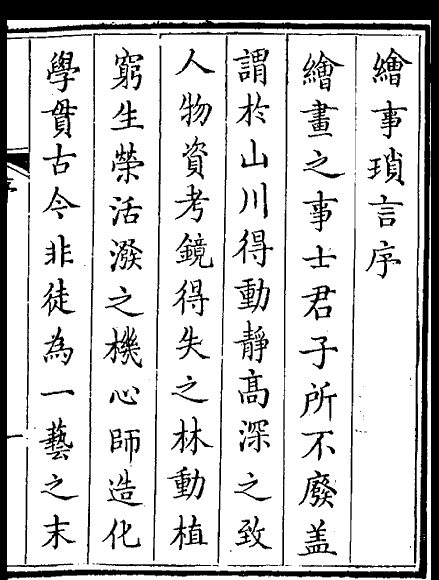 繪事瑣言序
繪畫之事士君子所不廢盖
謂於山川得動靜高深之致
人物資考鏡得失之林動植
窮生榮活潑之機心師造化
學貫古今非徒為一藝之末